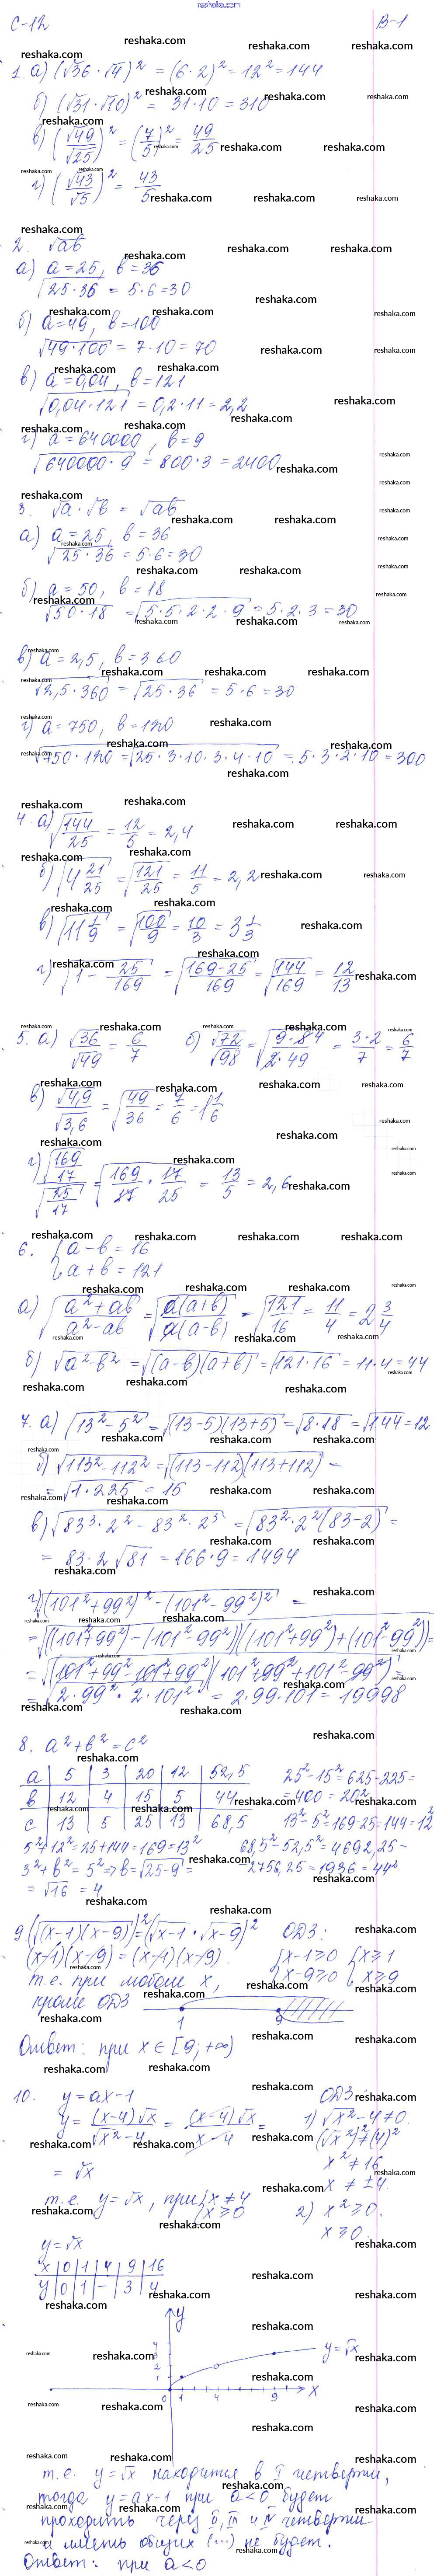 reshaka.com
С-12 В-1
1. а) (√36 · √4)² = (6 · 2)² = 12² = 144
б) (√31 · √10)² = 31 · 10 = 310
в) (√49/√25)² = (7/5)² = 49/25
г) (√43/√5)² = 43/5
2. √ab
а) a = 25, b = 36
√25 · 36 = 5 · 6 = 30
б) a = 49, b = 100
√49 · 100 = 7 · 10 = 70
в) a = 0,04, b = 121
√0,04 · 121 = 0,2 · 11 = 2,2
г) a = 640000, b = 9
√640000 · 9 = 800 · 3 = 2400
3. √a · √b = √ab
а) a = 25, b = 36
√25 · 36 = 5 · 6 = 30
б) a = 50, b = 18
√50 · 18 = √5 · 5 · 2 · 2 · 9 = 5 · 2 · 3 = 30
в) a = 2,5, b = 360
√2,5 · 360 = √25 · 36 = 5 · 6 = 30
г) a = 750, b = 120
√750 · 120 = √25 · 3 · 10 · 3 · 4 · 10 = 5 · 3 · 2 · 10 = 300
4. а) √144/25 = 12/5 = 2,4
б) √4 21/25 = √121/25 = 11/5 = 2,2
в) √11 1/9 = √100/9 = 10/3 = 3 1/3
г) √1 - 25/169 = √(169-25)/169 = √144/169 = 12/13
5. а) √36/√49 = 6/7 б) √72/√98 = √(9 · 8 4)/(2 · 49) = 3 · 2/7 = 6/7
в) √4,9/√3,6 = √49/36 = 7/6 = 1 1/6
г) √169/17 / √25/17 = √169/17 · 17/25 = 13/5 = 2,6
6. { a - b = 16
a + b = 121
а) √(a² + ab)/(a² - ab) = √a(a+b)/a(a-b) = √121/16 = 11/4 = 2 3/4
б) √a² - b² = √(a-b)(a+b) = √121 · 16 = 11 · 4 = 44
7. а) √13² - 5² = √(13-5)(13+5) = √8 · 18 = √144 = 12
б) √113² - 112² = √(113-112)(113+112) =
= √1 · 225 = 15
в) √83³ · 2² - 83² · 2³ = √83² · 2²(83-2) =
= 83 · 2 √81 = 166 · 9 = 1494
г) √(101² + 99²)² - (101² - 99²)² =
= √((101² + 99²) - (101² - 99²))((101² + 99²) + (101² - 99²)) =
= √(101² + 99² - 101² + 99²)(101² + 99² + 101² - 99²) =
= √2 · 99² · 2 · 101² = 2 · 99 · 101 = 19998
8. a² + b² = c²
a | 5 | 3 | 20 | 12 | 52,5 25² - 15² = 625 - 225 =
b | 12 | 4 | 15 | 5 | 44 = 400 = 20²
c | 13 | 5 | 25 | 13 | 68,5 13² - 5² = 169 - 25 = 144 = 12²
5² + 12² = 25 + 144 = 169 = 13² 68,5² - 52,5² = 4692,25 -
3² + b² = 5² ⇒ b = √25 - 9 = 2756,25 = 1936 = 44²
= √16 = 4
9. (√(x-1)(x-9))² = (√x-1 · √x-9)² ОДЗ:
(x-1)(x-9) = (x-1)(x-9). { x - 1 ≥ 0 { x ≥ 1
т.е. при любом x, x - 9 ≥ 0 x ≥ 9
кроме ОДЗ
1 9
Ответ: при x ∈ [9; +∞)
10. y = ax - 1 ОДЗ:
y = (x-4)√x/√x² - 4 = (x-4)√x/x - 4 = 1) √x² - 4 ≠ 0.
(√x²)² ≠ (4)²
= √x x² ≠ 16
x ≠ ±4.
т.е. y = √x, при { x ≠ 4 2) x² ≥ 0.
x ≥ 0 x ≥ 0.
y = √x
x | 0 | 1 | 4 | 9 | 16
y | 0 | 1 | - | 3 | 4
y
4
3
2
1
0 1 4 9 x
y = √x
т.е. y = √x находится в I четверти,
тогда y = ax - 1 при a < 0 будет
проходить через II, III и IV четверти
и иметь общих (...) не будет.
Ответ: при a < 0